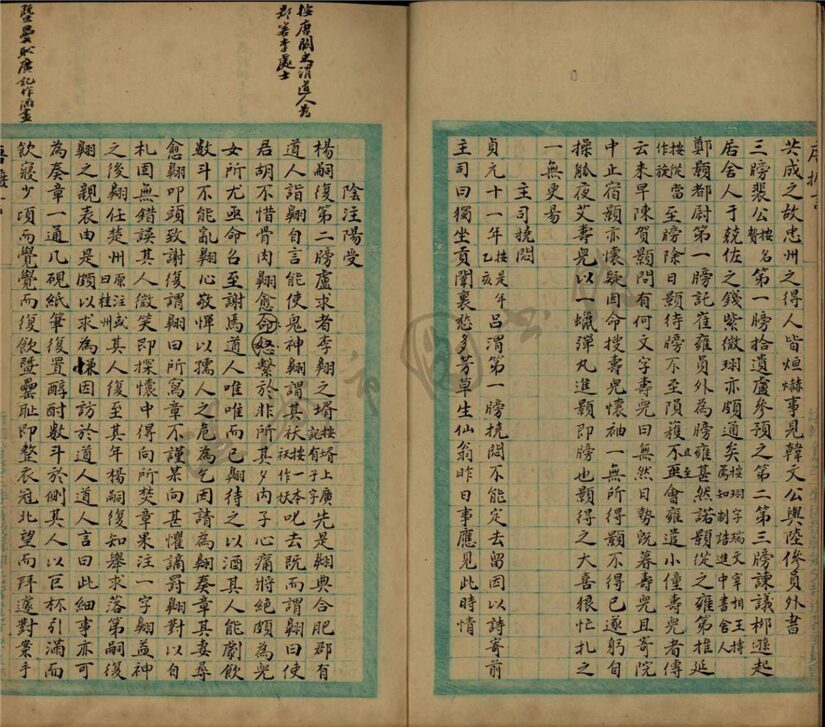 共成之故忠州之得人皆烜赫事見韓文公與陸傪員外書
三牓裴公按名贄第一牓拾遺盧參預之第二第三牓諫議柳遜起
居舍人于兢佐之錢紫微珝亦頗通矣按珝字瑞文宰相王摶薦知制誥進中書舍人
鄭顥都尉第一牓託崔雍員外為牓雍甚然諾顥從之雍第推延
按從當作放至牓除日顥待牓不至隕穫且至會雍遣小僮壽兒者傳
云來早陳賀顥問有何文字壽兒曰無然日勢旣暮壽兒且寄院
中止宿顥亦懷疑因命搜壽兒懷袖一無所得顥不得已遂躬自
操觚夜艾壽兒以一蠟彈丸進顥即牓也顥得之大喜狼忙札之
一無更易
主司撓悶
貞元十一年按是年乙亥呂渭第一牓撓悶不能定去留因以詩寄前
主司曰獨坐貢闈裏愁多芳草生仙翁昨日事應見此時情
按唐闕史謂道人為
郡客李處士
陰注陽受
楊嗣復第二牓盧求者李翺之壻按壻上廣記有子字先是翺典合肥郡有
道人詣翺自言能使鬼神翺謂其妖按一本妖作袄叱去既而謂翺曰使
君胡不惜骨肉翺愈怒命繫於非所其夕内子心痛將絕頗為兒
女所尤亟命召至謝焉道人唯唯而已翺待之以酒其人能劇飲
數斗不能亂翺心敬憚以孺人之危為乞因請為翺奏章其妻尋
愈翺叩頭致謝復謂翺曰所寫章不謹某向甚懼謫罰翺對以自
札固無錯誤其人微笑即探懷中得向所焚章果注一字翺益神
之後翺任楚州原注或曰桂州其人復至其年楊嗣復知舉求落第嗣復
翺之親表由是頗以求為慊因訪於道人道人言曰此細事亦可
為奏章一通几硯紙筆復置醇酎數斗於側其人以巨杯引滿而
飲寢少頃而覺覺而復飲暨罍耻即整衣冠北望而拜遽對案手
暨罍耻廣記作酒盡